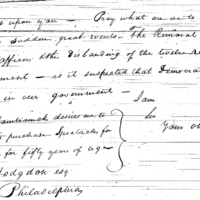 upon you. Pray what are we to
sudden, great events – The Removal
officers & the Disbanding of the twelve Re
ment – is it suspected that Democra
in our government –
I am
desires me to
Sir
purchase Spectacles for
Your ob
for fifty years of age –
Hodgdon esqr
Philadelphia